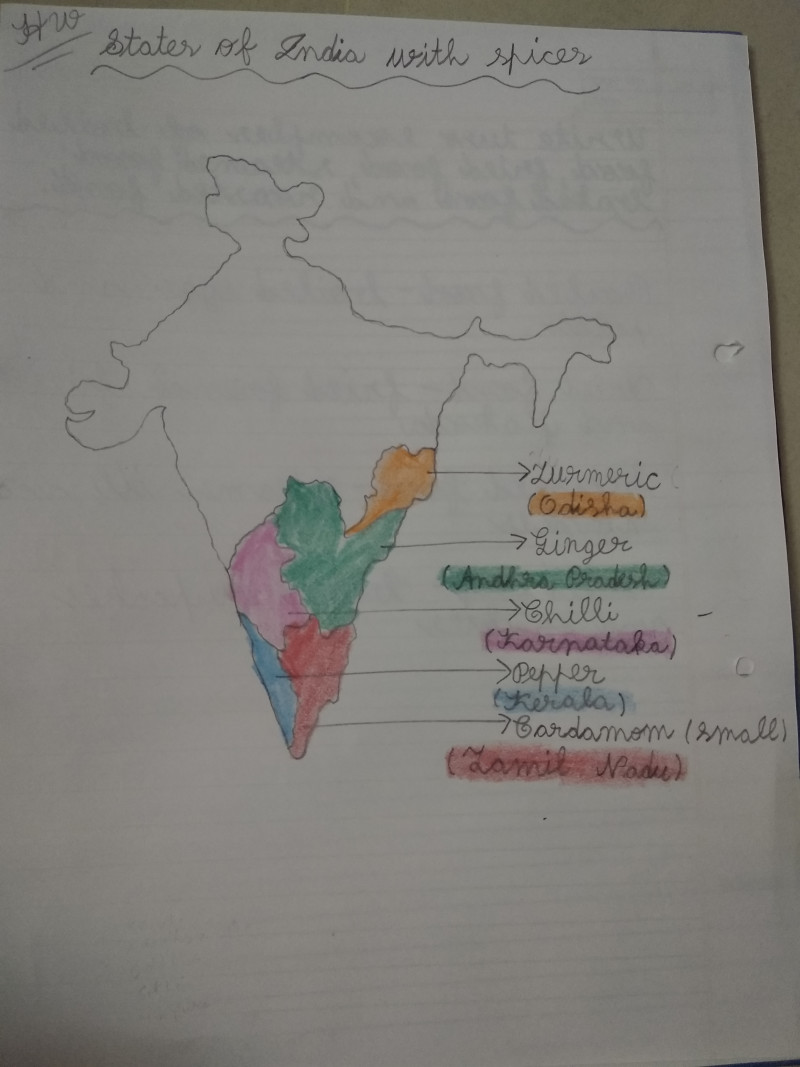 HW
States of India with spices
Turmeric
(Odisha)
Ginger
(Andhra Pradesh)
Chilli
(Karnataka)
Pepper
(Kerala)
Cardamom (small)
(Tamil Nadu)